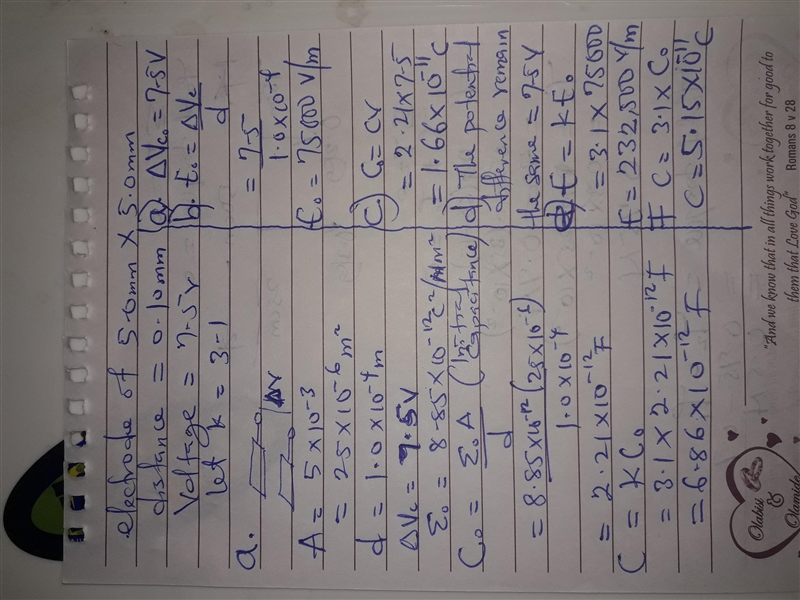 electrode of 5.0mm X 5.0mm
distance = 0.10mm
Voltage = 7.5V
let k = 3.1
a.
ΔV
A = 5 X 10⁻³
= 25 X 10⁻⁶ m²
d = 1.0 X 10⁻⁴ m
ΔVc = 7.5V
ε₀ = 8.85 X 10⁻¹² C²/Nm²
C₀ = ε₀ A (Initial
capacitance)
d
= 8.85 X 10⁻¹² (25 X 10⁻⁶)
1.0 X 10⁻⁴
= 2.21 X 10⁻¹² F
C = KC₀
= 3.1 X 2.21 X 10⁻¹² F
= 6.86 X 10⁻¹² F
a) ΔVc₀ = 7.5V
b. E₀ = ΔVc
d
= 7.5
1.0 X 10⁻⁴
E₀ = 75000 V/m
c) C₀ = CV
= 2.21 X 7.5
= 1.66 X 10⁻¹¹ C
d) The potential
difference remain
the same = 7.5V
e) E = KE₀
= 3.1 X 75000
E = 232,500 V/m
F C = 3.1 X C₀
C = 5.15 X 10⁻¹¹
C
Olabisi
&
Olamide
"And we know that in all things work together for good to
them that Love God" Romans 8 v 28